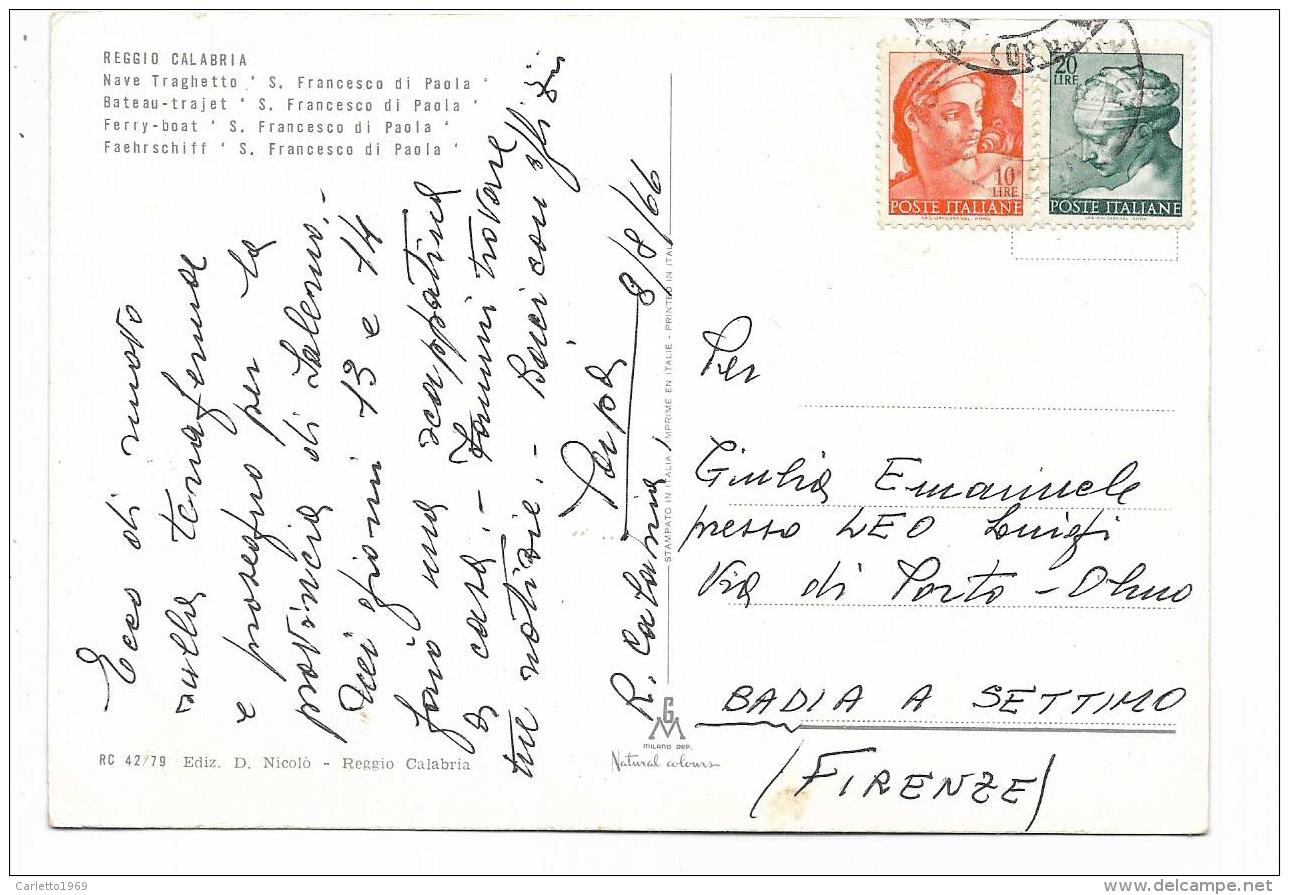 REGGIO CALABRIA
Nave Traghetto ' S. Francesco di Paola '
Bateau-trajet ' S. Francesco di Paola '
Ferry-boat ' S. Francesco di Paola '
Faehrschiff ' S. Francesco di Paola '
Ecco di nuovo
sulla terraferma
e proseguo per la
provincia di Salerno.-
Nei giorni 13 e 14
farò una scappatina
a casa.- Fammi trovare
tue notizie.- Bacioni affli
Papà
R. Calabria, 8/8/66
STAMPATO IN ITALIA IMPRIME EN ITALIE - PRINTED IN ITALY
10
LIRE
POSTE ITALIANE
20
LIRE
POSTE ITALIANE
Per
Giulia Emanuele
presso LEO Luigi
Via di Porto -
BADIA A SETTIMO
(FIRENZE)
RC 42/79 Ediz. D. Nicolò - Reggio Calabria
GM
MILANO DEP.
Natural colours
Carletto1969
delcampe.net